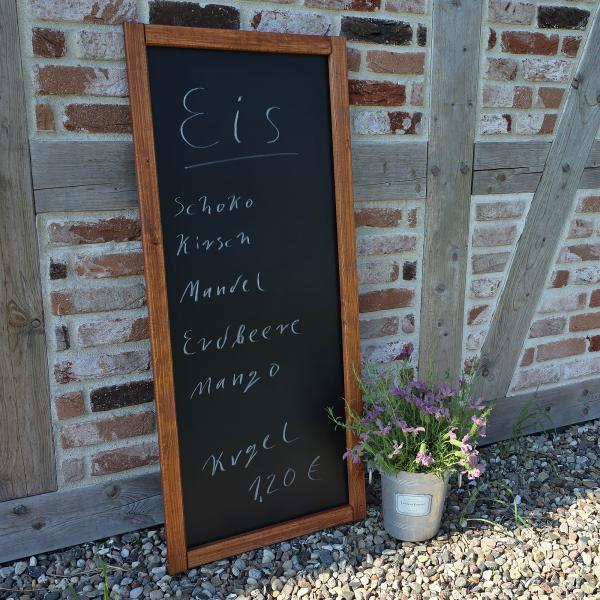 Eis
Schoko
Kirsch
Mandel
Erdbeere
Mango
Kugel
1,20 €